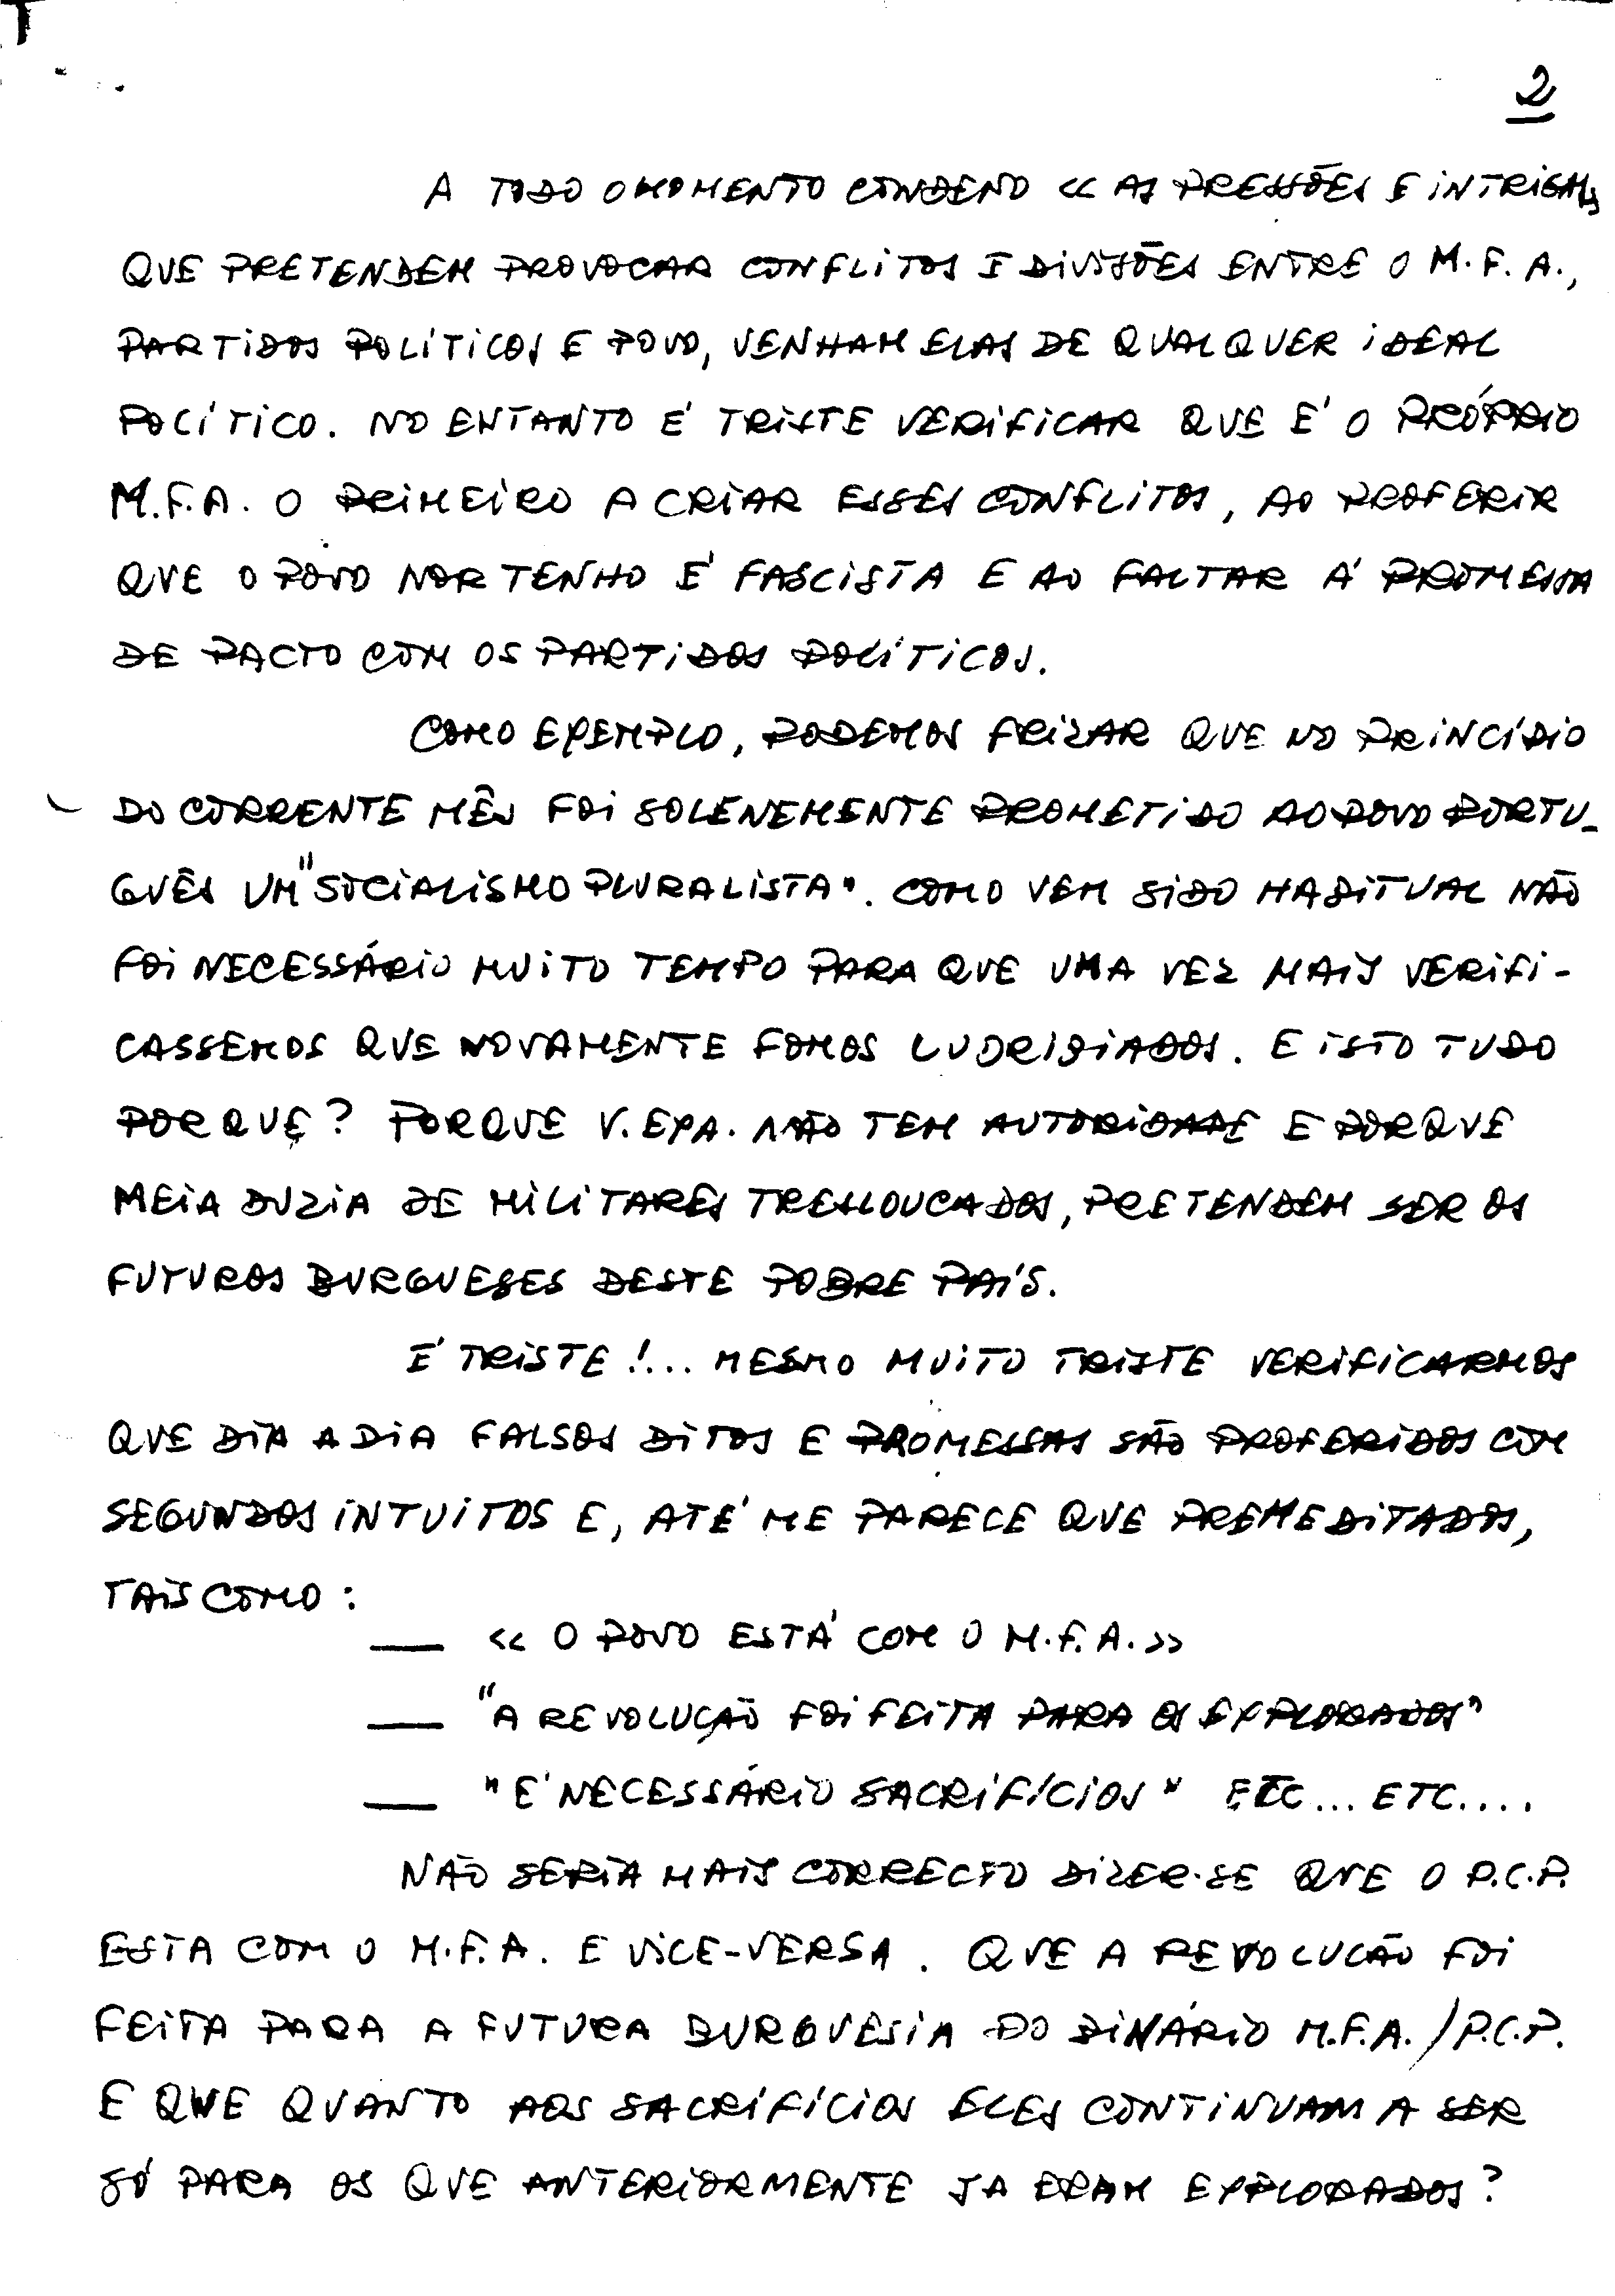 2
A TODO O MOMENTO CONDENO << AS PRESSÕES E INTRIGAS
QUE PRETENDEM PROVOCAR CONFLITOS E DIVISÕES ENTRE O M.F.A.,
PARTIDOS POLÍTICOS E POVO, VENHAM ELAS DE QUALQUER IDEAL
POLÍTICO. NO ENTANTO É TRISTE VERIFICAR QUE É O PRÓPRIO
M.F.A. O PRIMEIRO A CRIAR ESSES CONFLITOS, AO PROFERIR
QUE O POVO NORTENHO É FASCISTA E AO FALTAR Á PROMESSA
DE PACTO COM OS PARTIDOS POLÍTICOS.
COMO EXEMPLO, PODEMOS FRIZAR QUE NO PRINCÍPIO
DO CORRENTE MÊS FOI SOLENEMENTE PROMETIDO AO POVO PORTU-
GUÊS UM "SOCIALISMO PLURALISTA". COMO VEM SIDO HABITUAL NÃO
FOI NECESSÁRIO MUITO TEMPO PARA QUE UMA VEZ MAIS VERIFI-
CASSEMOS QUE NOVAMENTE FOMOS LUDRIBIADOS. E ISTO TUDO
PORQUE? PORQUE V. EXA. NÃO TEM AUTORIDADE E PORQUE
MEIA DUZIA DE MILITARES TRESLOUCADOS, PRETENDEM SER OS
FUTUROS BURGUESES DESTE POBRE PAÍS.
É TRISTE!... MESMO MUITO TRISTE VERIFICARMOS
QUE DIA A DIA FALSOS DITOS E PROMESSAS SÃO PROFERIDOS COM
SEGUNDOS INTUITOS E, ATÉ ME PARECE QUE PREMEDITADOS,
TAIS COMO:
— << O POVO ESTÁ COM O M.F.A. >>
— "A REVOLUÇÃO FOI FEITA PARA OS EXPLORADOS"
— "É NECESSÁRIO SACRIFÍCIOS" ETC... ETC....
NÃO SERIA MAIS CORRECTO DIZER-SE QUE O P.C.P.
ESTA COM O M.F.A. E VICE-VERSA. QUE A REVOLUCÃO FOI
FEITA PARA A FUTURA BURGUESIA DO BINÁRIO M.F.A./P.C.P.
E QUE QUANTO AOS SACRIFÍCIOS ELES CONTINUAM A SER
SÓ PARA OS QUE ANTERIORMENTE JA ERAM EXPLORADOS?